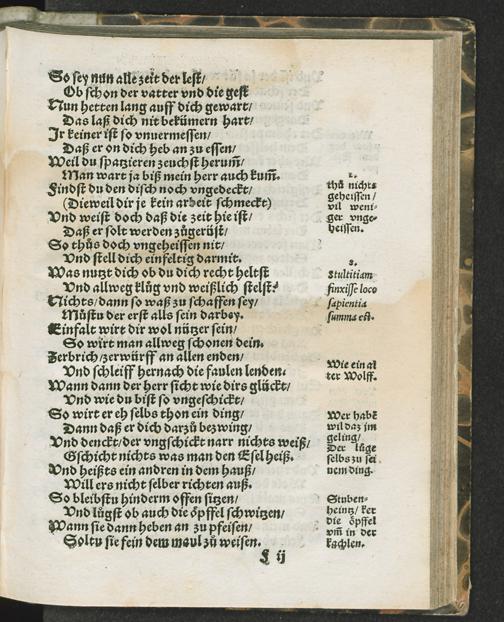 So sey nun alle zeit der lest/
Ob schon der vatter vnd die gest
Nun hetten lang auff dich gewart/
Das laß dich nit bekümern hart/
Jr keiner ist so vnuermessen/
Daß er on dich heb an zu essen/
Weil du spatzieren zeuchst herum̄/
Man wart ja biß mein herr auch kum̄.
Findst du den disch noch vngedeckt/
(Dieweil dir je kein arbeit schmeckt)
Vnd weist doch daß die zeit hie ist/
Daß er solt werden zůgerüst/
So thůs doch vngeheissen nit/
Vnd stell dich einfeltig darmit.
Was nutzt dich ob du dich recht heltst
Vnd allweg klůg vnd weißlich stelst?
Nichts/dann so waß zu schaffen sey/
Můstu der erst alls sein darbey.
Einfalt wirt dir wol nützer sein/
So wirt man allweg schonen dein.
Zerbrich/zerwürff an allen enden/
Vnd schleiff hernach die faulen lenden.
Wann dann der herr sicht wie dirs glückt/
Vnd wie du bist so vngeschickt/
So wirt er eh selbs thon ein ding/
Dann daß er dich darzů bezwing/
Vnd denckt/der vngschickt narr nichts weiß/
Gschicht nichts was man den Esel heiß.
Vnd heißts ein andren in dem hauß/
Will ers nicht selber richten auß.
So bleibstu hinderm offen sitzen/
Vnd lůgst ob auch die öpffel schwitzen/
Wann sie dann heben an zu pfeisen/
Soltu sie fein dem maul zů weisen.
F ij
1.
thů nichts
geheissen/
vil weni-
ger vnge-
heissen.
2.
Stultitiam
finxisse loco
sapientia
summa est.
Wie ein al
ter Wolff.
Wer habē
wil daz im
geling/
Der lůge
selbs zu sei
nem ding.
Stuben-
heintz/ ker
die öpffel
vm̄ in der
kachlen.